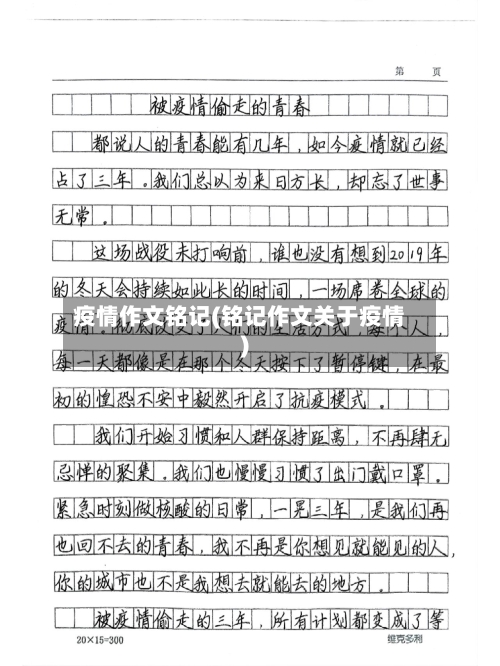 第 页
被疫情偷走的青春
都说人的青春能有几年，如今疫情就已经
占了三年。我们总以为来日方长，却忘了世事
无常。
这场战役未打响前，谁也没有想到2019年
的冬天会持续如此长的时间，一场席卷全球的
疫情作文铭记(铭记作文关于疫情
)
疫情。彻底改变了人们的生活方式 每个人，
每一天都像是在那个冬天按下了暂停键，在最
初的惶恐不安中毅然开启了抗疫模式。
我们开始习惯和人群保持距离，不再肆无
忌惮的聚集。我们也慢慢习惯了出门戴口罩。
紧急时刻做核酸的日常，一晃三年，是我们再
也回不去的青春，我不再是你想见就能见的人，
你的城市也不是我想去就能去的地方。
被疫情偷走的三年，所有计划都变成了等
20×15=300
维克多利